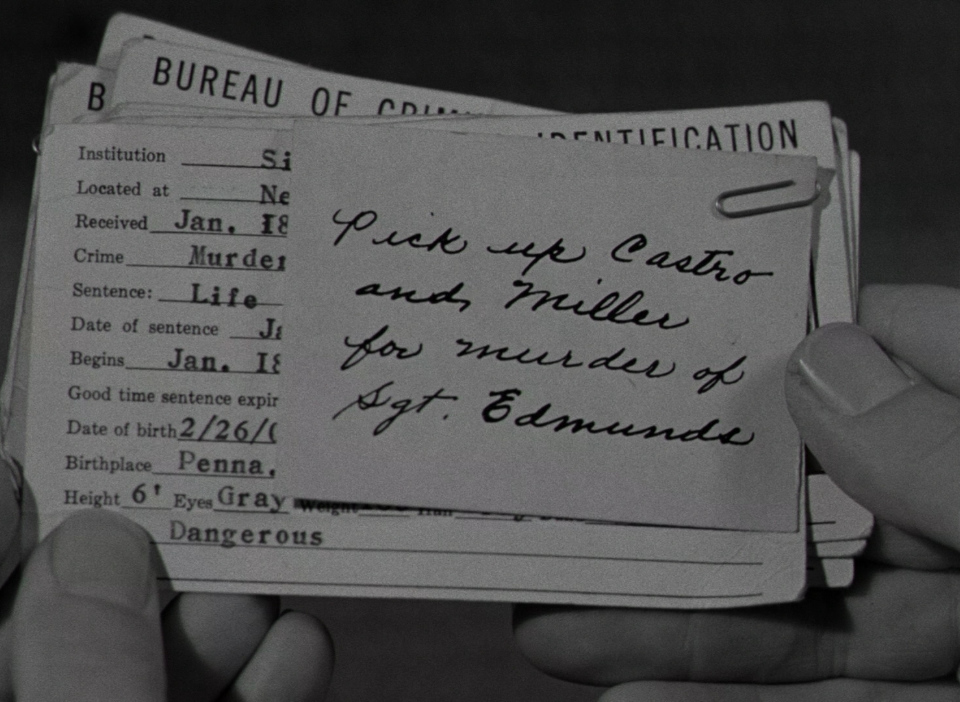 BUREAU OF
IDENTIFICATION
Institution
Located at
Received Jan. 18
Crime Murder
Sentence: Life
Date of sentence
Begins Jan. 18
Good time sentence
Date of birth 2/26/
Birthplace Penna.
Height 6' Eyes Gray Weight
Dangerous
Pick up Castro
and Miller
for murder of
Sgt. Edmunds